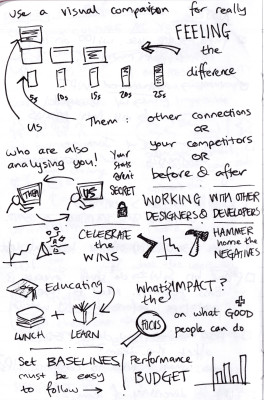 use a visual comparison for really
FEELING
the
difference
5s 10s 15s 20s 25s
US
Them: other connections
OR
your competitors
OR
before & after
who are also
analysing you!
Your
stats
arent
SECRET
THEM
US
WORKING WITH OTHER
DESIGNERS & DEVELOPERS
CELEBRATE
the
WINS
HAMMER
home the
NEGATIVES
Educating
LUNCH + LEARN
What's the IMPACT?
FOCUS
on what GOOD
people can do
Set BASELINES
must be easy
to follow →
Performance
BUDGET